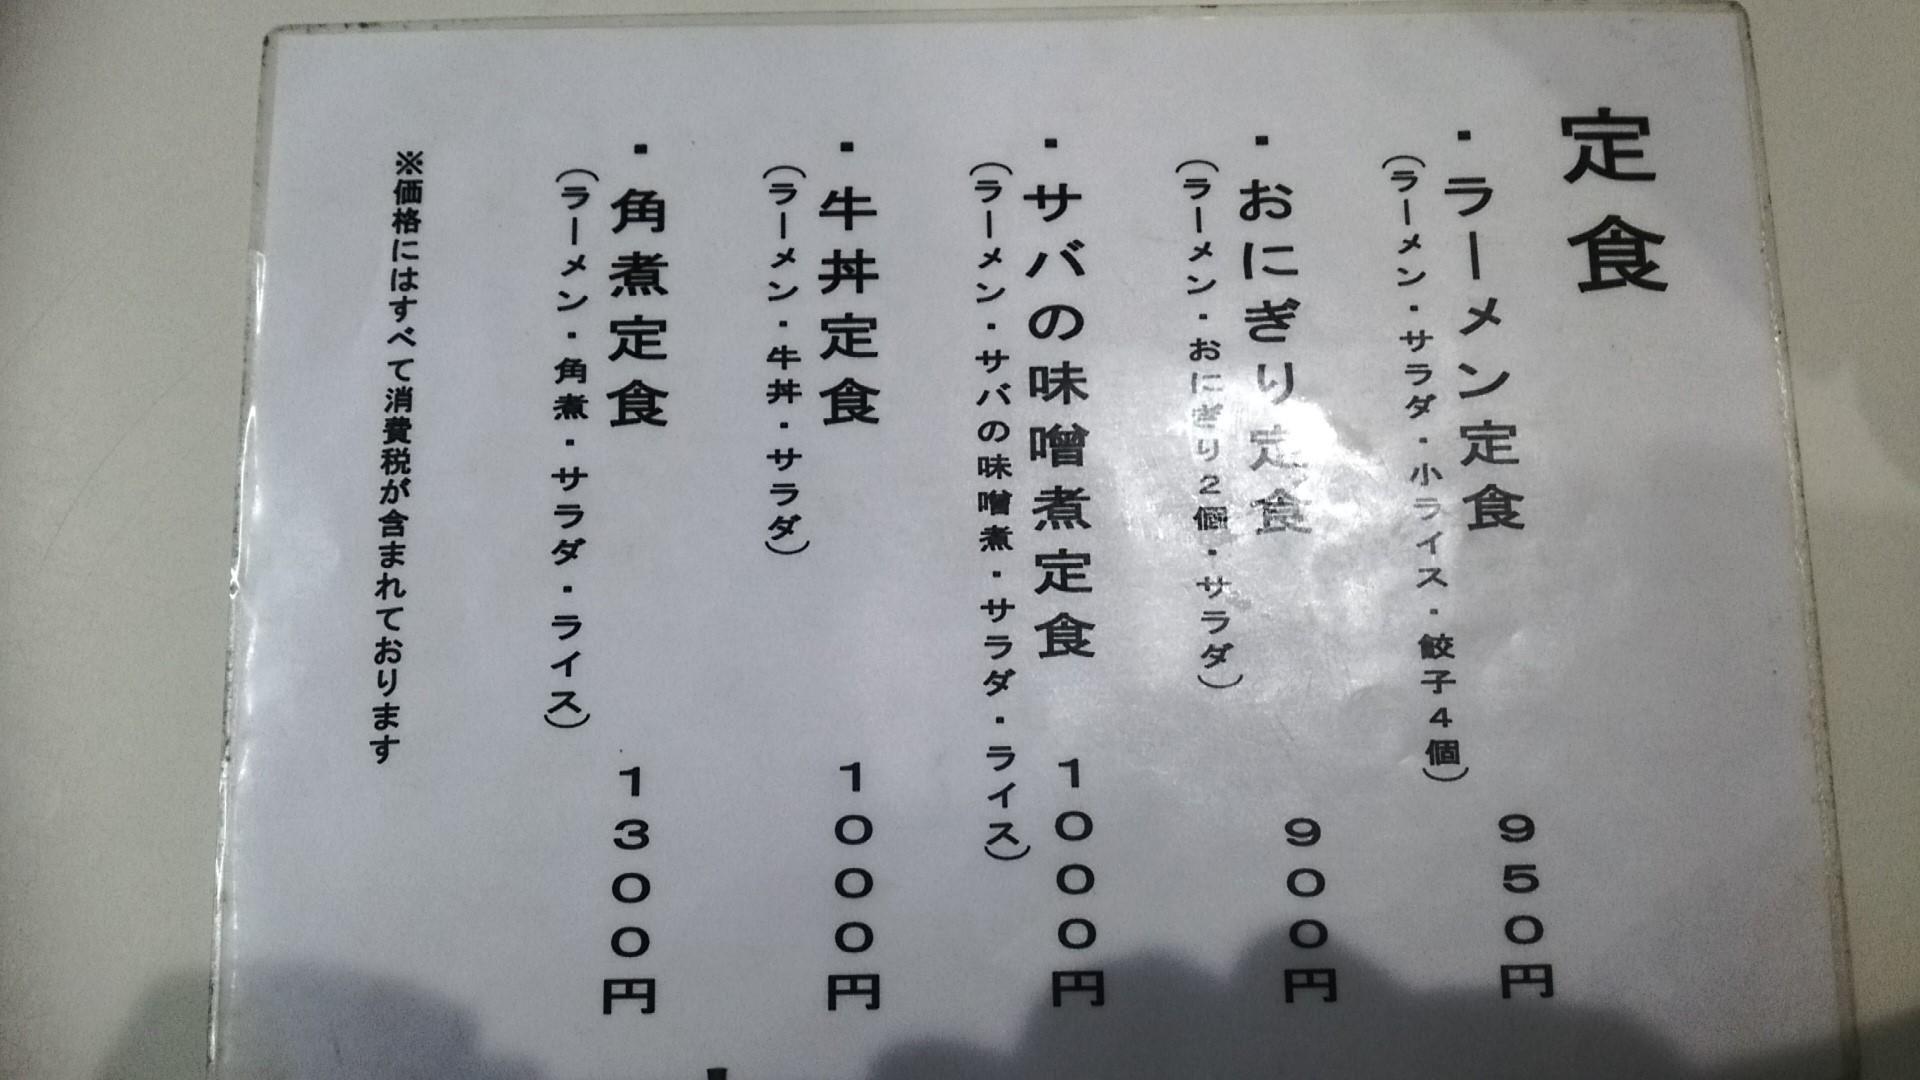 定食
・ラーメン定食 950円
(ラーメン・サラダ・小ライス・餃子4個)
・おにぎり定食 900円
(ラーメン・おにぎり2個・サラダ)
・サバの味噌煮定食 1000円
(ラーメン・サバの味噌煮・サラダ・ライス)
・牛丼定食 1000円
(ラーメン・牛丼・サラダ)
・角煮定食 1300円
(ラーメン・角煮・サラダ・ライス)
※価格にはすべて消費税が含まれております